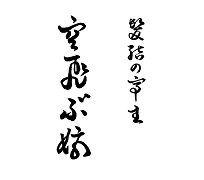 髪結の亭主
空飛ぶ嫁